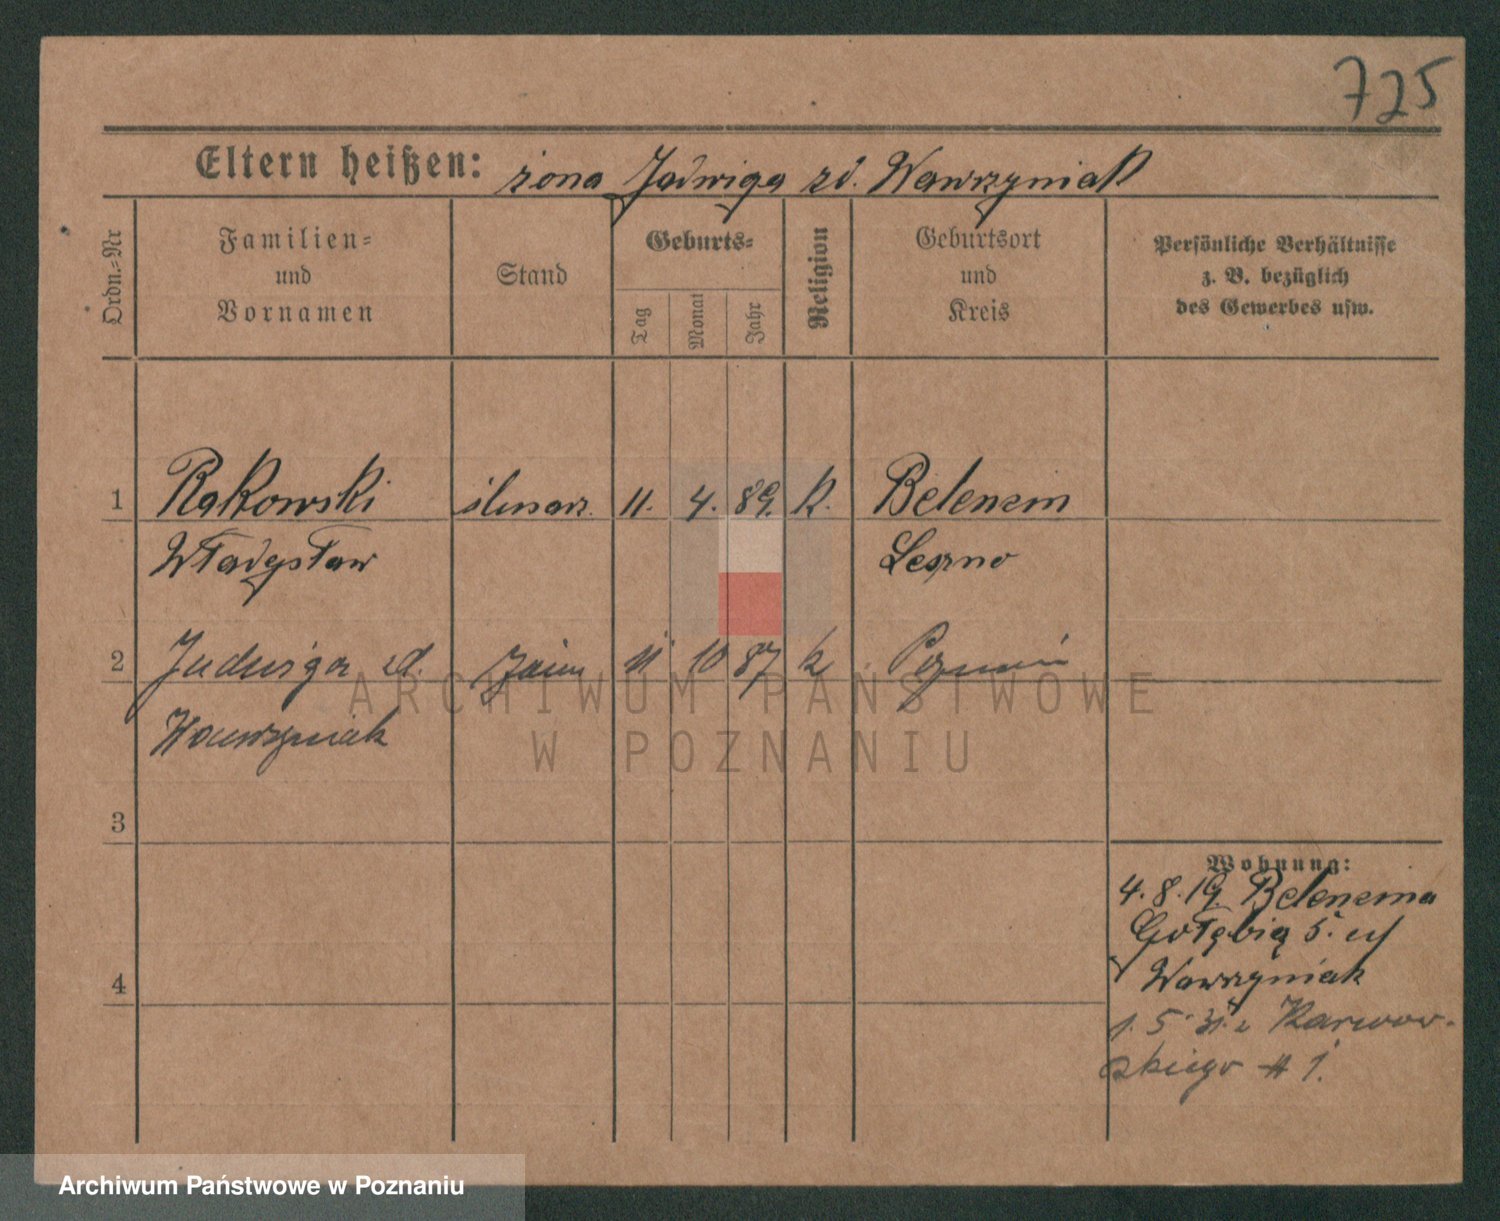 725
Eltern heißen: żona Jadwiga zd. Wawrzyniak
Ordn.-Nr
Familien-
und
Vornamen
Stand
Geburts-
Tag
Monat
Jahr
Religion
Geburtsort
und
Kreis
Persönliche Verhältnisse
z. B. bezüglich
des Gewerbes usw.
1 Rakowski ślusarz. 11. 4. 89. k. Belencin
Władysław Leszno
2 Jadwiga zd. 11 10 87 k Poznań
Wawrzyniak
ARCHIWUM PAŃSTWOWE
W POZNANIU
3
Wohnung:
4. 8. 19 Belencina
Gołębia 5.
Wawrzyniak
4
1. 5. 31. z Karwow-
skiego 1.
Archiwum Państwowe w Poznaniu